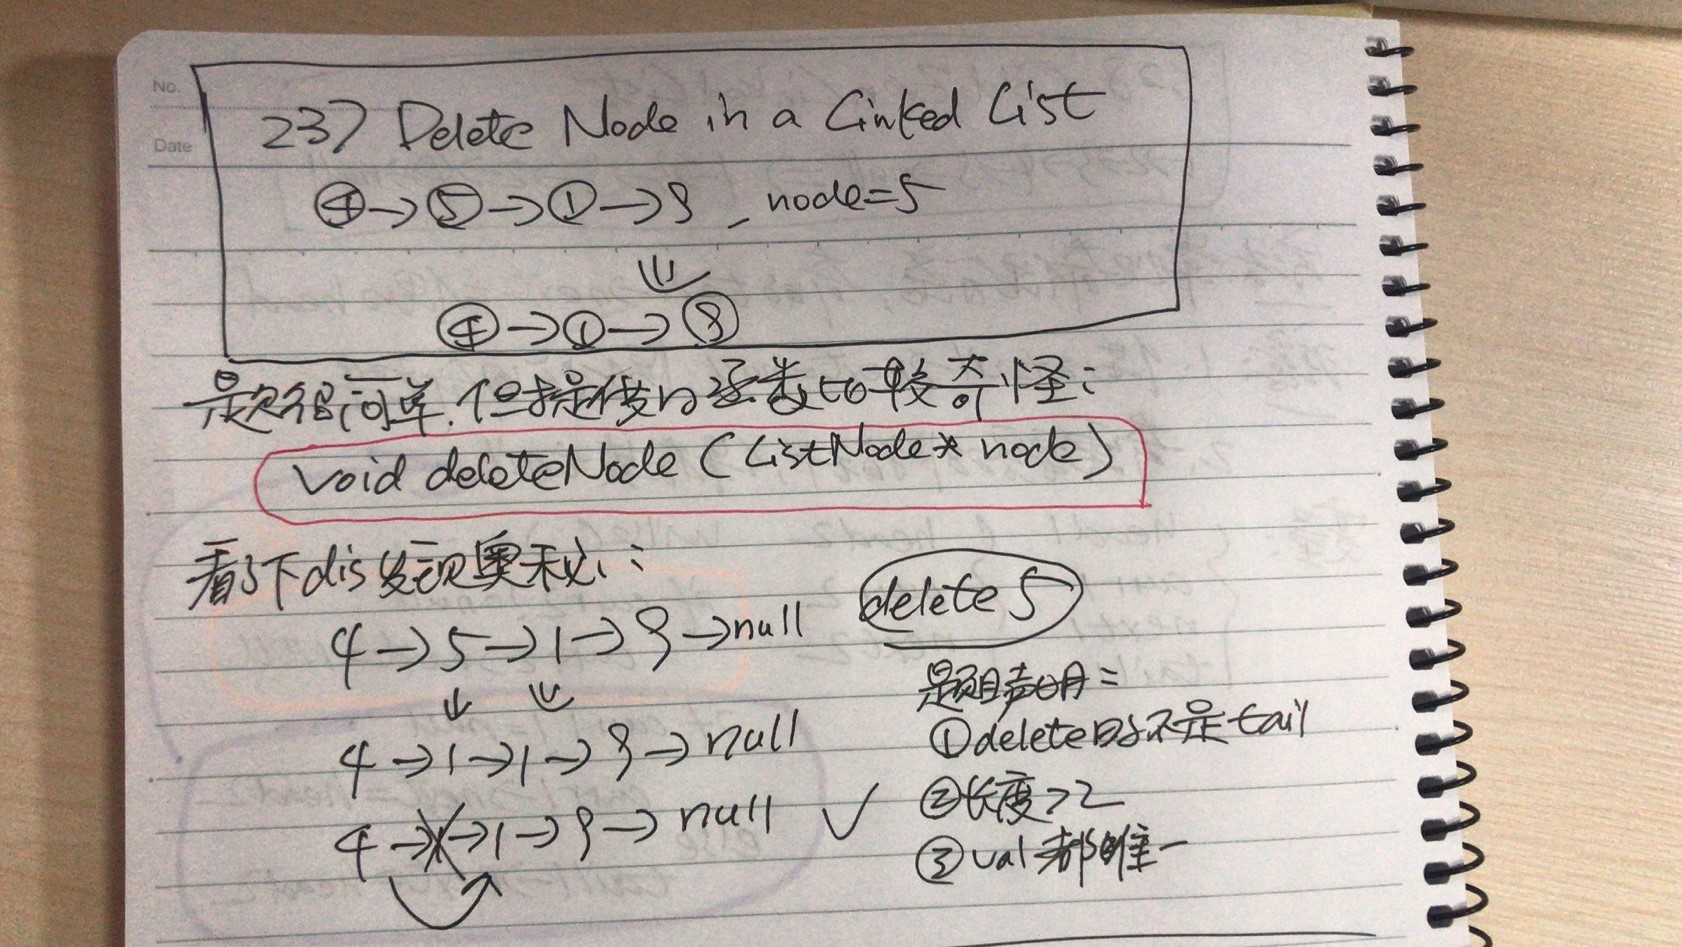 No.
Date
237 Delete Node in a Linked List
④→⑤→①→9, node=5
⇓
④→①→⑨
是很简单,但提供的函数比较奇怪:
void deleteNode(ListNode* node)
看了下dis发现奥秘:
4→5→1→9→null
delete 5
↓ ↓
4→1→1→9→null
4→1→1→9→null ✓
题目声明:
①delete的不是tail
②长度>2
③val都唯一